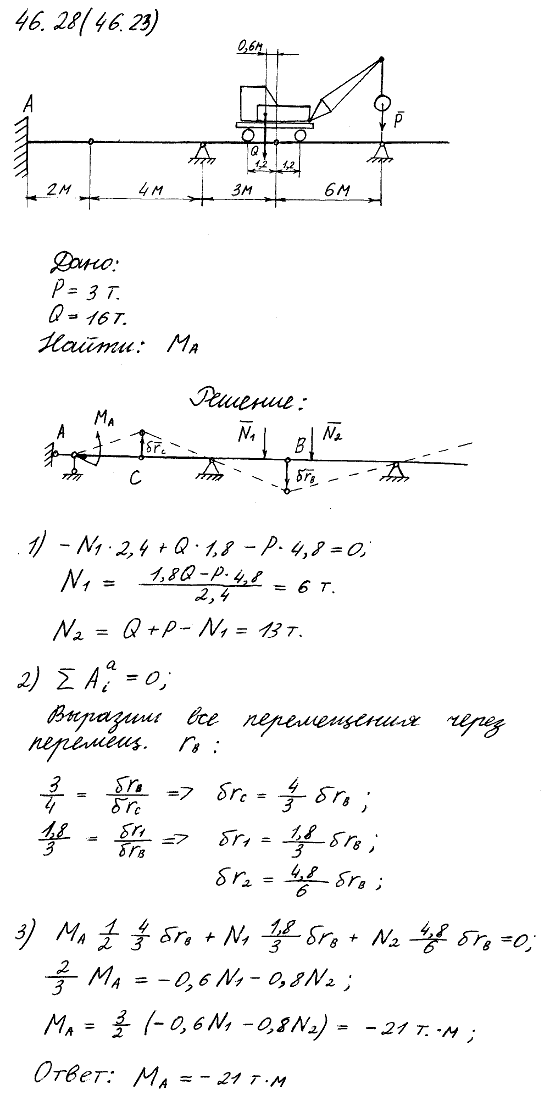 46.28(46.23)
0,6м
A
P̄
Q
1,2 1,2
2м 4м 3м 6м
Дано:
P = 3 т.
Q = 16т.
Найти: M_A
Решение:
A M_A δr̄_c N̄₁ B N̄₂
C δr̄_B
1) - N₁·2,4 + Q·1,8 - P·4,8 = 0;
N₁ = (1,8Q - P·4,8)/2,4 = 6 т.
N₂ = Q + P - N₁ = 13т.
2) Σ A_i^a = 0;
Выразим все перемещения через
перемещ. r_B :
3/4 = δr_B/δr_c => δr_c = 4/3 δr_B ;
1,8/3 = δr₁/δr_B => δr₁ = 1,8/3 δr_B ;
δr₂ = 4,8/6 δr_B ;
3) M_A 1/2 4/3 δr_B + N₁ 1,8/3 δr_B + N₂ 4,8/6 δr_B = 0;
2/3 M_A = - 0,6 N₁ - 0,8 N₂ ;
M_A = 3/2 (- 0,6 N₁ - 0,8 N₂) = - 21 т.·м ;
Ответ: M_A = - 21 т·м